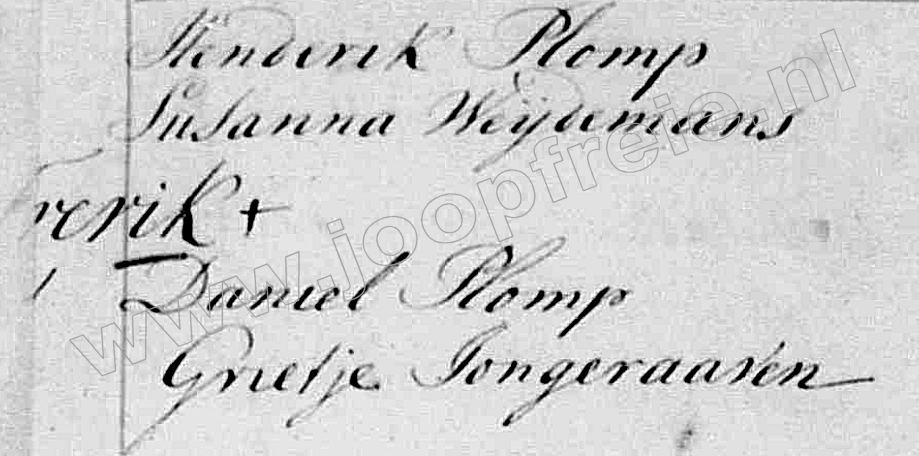 Henderik Plomp
Susanna Weÿdemans
rerik +
Daniel Plomp
Grietje Jongeraasén
www.joopfreie.nl